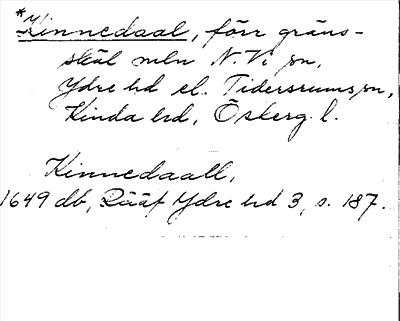 *Kinnedaal, förr gräns-
skäl mln N. Vi sn,
Ydre hd el. Tidersrums sn,
Kinda hd, Östergl.
Kinnedaall,
1649 db, Rääf Ydre hd 3, s. 187.